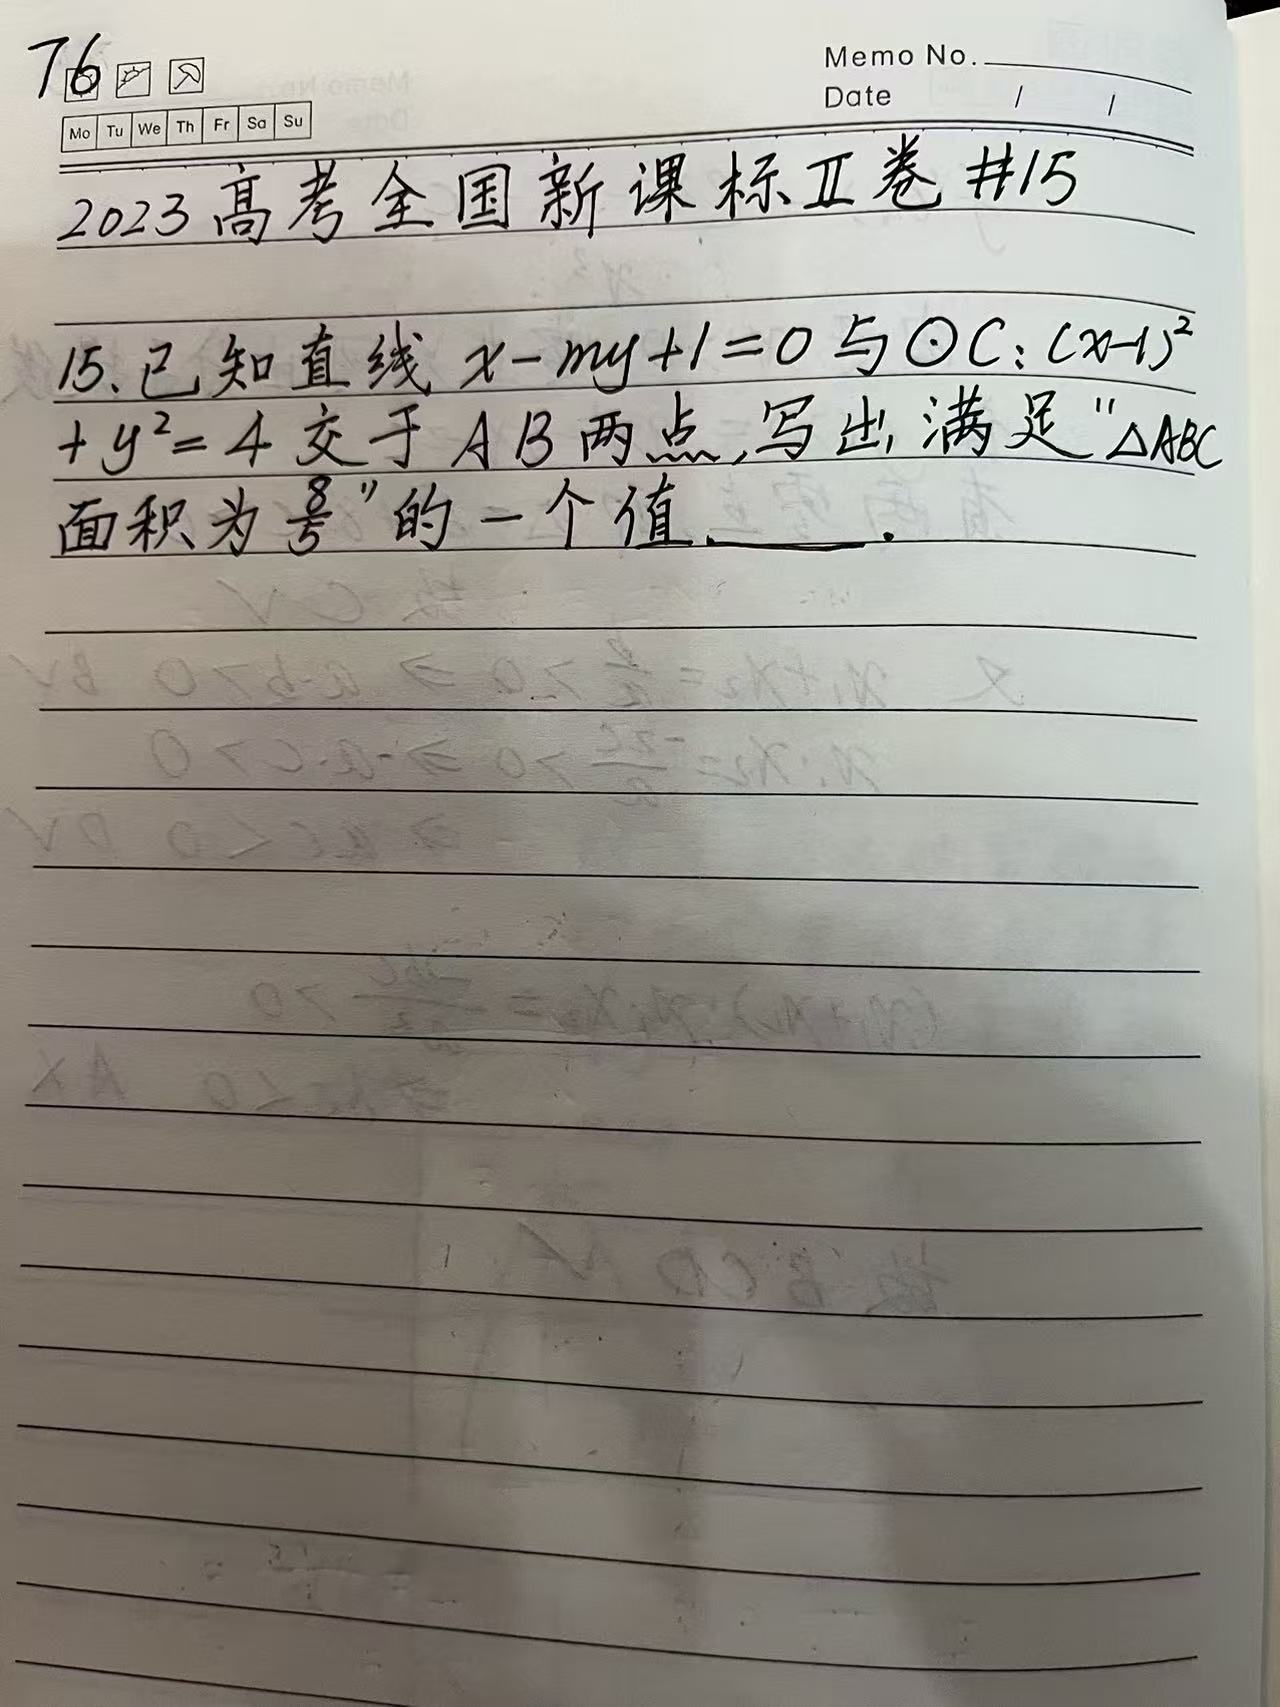 76
Memo No.
Date / /
Mo Tu We Th Fr Sa Su
2023高考全国新课标Ⅱ卷#15
15.已知直线 x-my+1=0与⊙C:(x-1)²
+y²=4交于AB两点,写出满足"△ABC
面积为8/5"的一个值______.